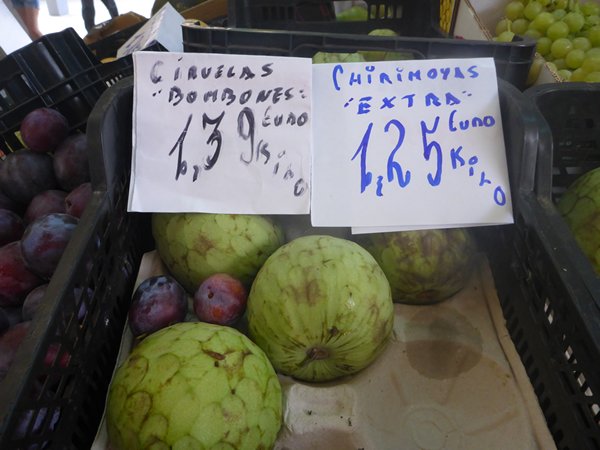 CIRUELAS
"BOMBONES"
1,39 EURO
KILO
CHIRIMOYAS
"EXTRA"
1,25 EURO
KILO